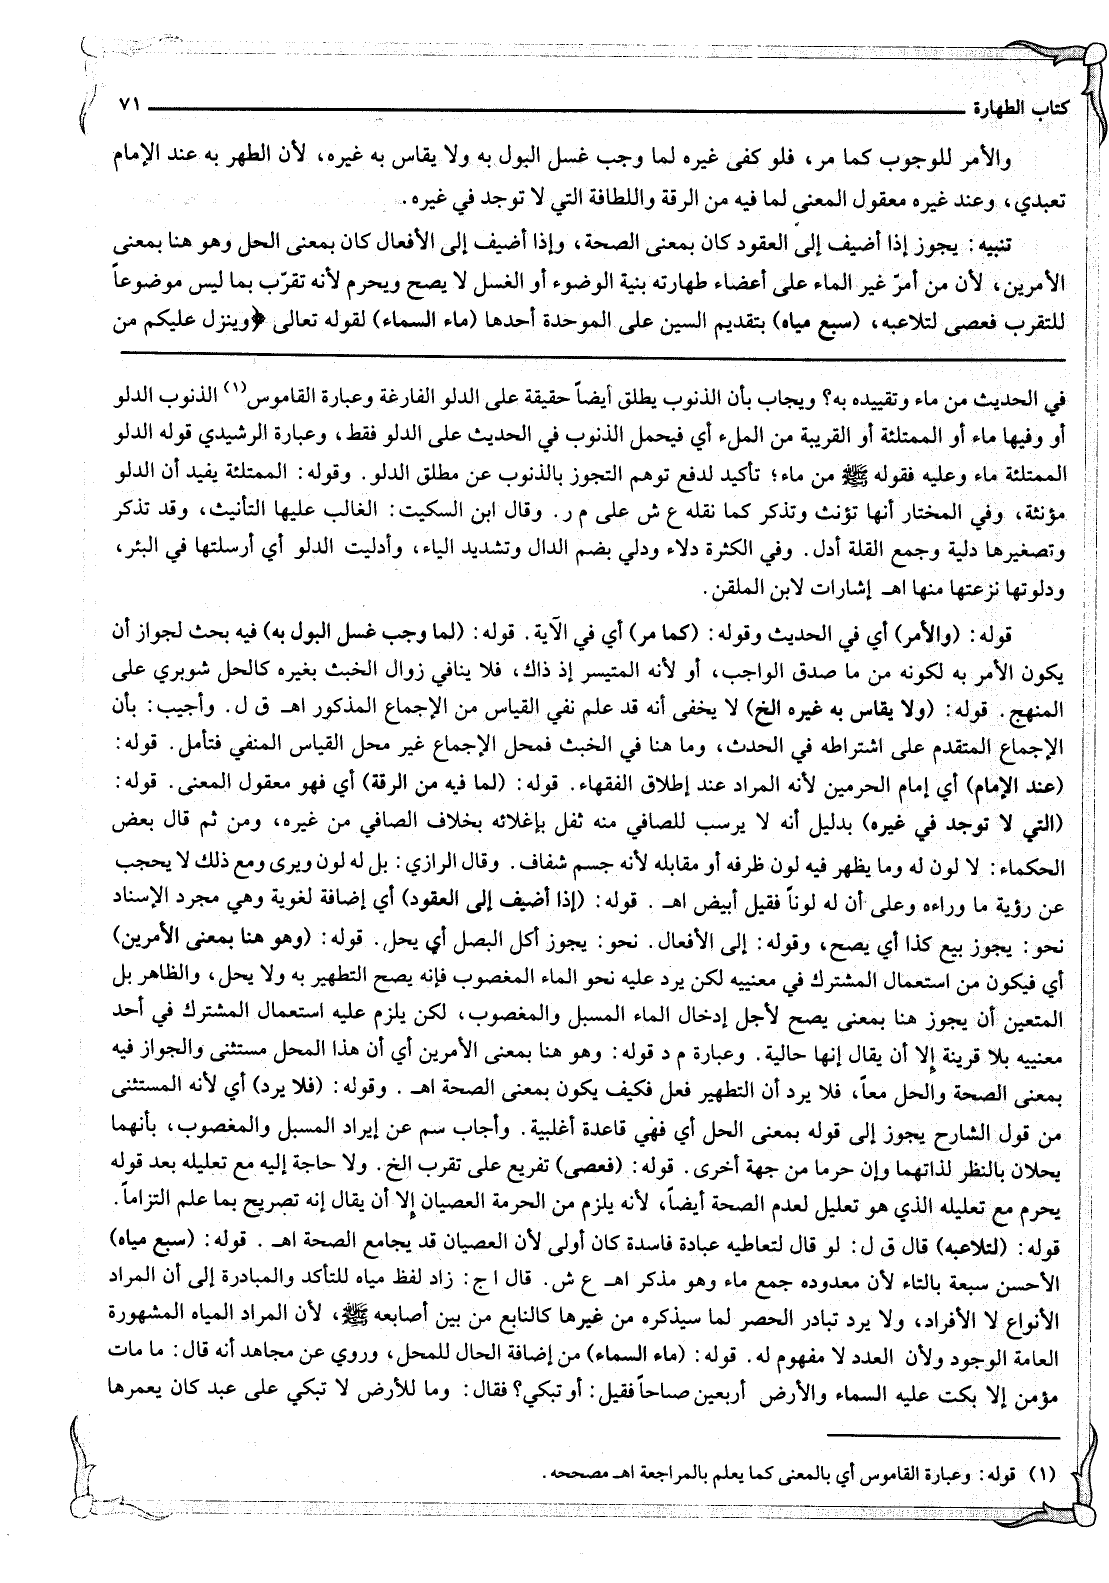 كتاب الطهارة ٧١
والأمر للوجوب كما مر، فلو كفى غيره لما وجب غسل البول به ولا يقاس به غيره، لأن الطهر به عند الإمام
تعبدي، وعند غيره معقول المعنى لما فيه من الرقة واللطافة التي لا توجد في غيره.
تنبيه: يجوز إذا أضيف إلى العقود كان بمعنى الصحة، وإذا أضيف إلى الأفعال كان بمعنى الحل وهو هنا بمعنى
الأمرين، لأن من أمرّ غير الماء على أعضاء طهارته بنية الوضوء أو الغسل لا يصح ويحرم لأنه تقرّب بما ليس موضوعاً
للتقرب فعصى لتلاعبه، (سبع مياه) بتقديم السين على الموحدة أحدها (ماء السماء) لقوله تعالى ﴿وينزل عليكم من
في الحديث من ماء وتقييده به؟ ويجاب بأن الذنوب يطلق أيضاً حقيقة على الدلو الفارغة وعبارة القاموس(١) الذنوب الدلو
أو وفيها ماء أو الممتلئة أو القريبة من الملء أي فيحمل الذنوب في الحديث على الدلو فقط، وعبارة الرشيدي قوله الدلو
الممتلئة ماء وعليه فقوله ﷺ من ماء؛ تأكيد لدفع توهم التجوز بالذنوب عن مطلق الدلو. وقوله: الممتلئة يفيد أن الدلو
مؤنثة، وفي المختار أنها تؤنث وتذكر كما نقله ع ش على م ر. وقال ابن السكيت: الغالب عليها التأنيث، وقد تذكر
وتصغيرها دلية وجمع القلة أدل. وفي الكثرة دلاء ودلي بضم الدال وتشديد الياء، وأدليت الدلو أي أرسلتها في البئر،
ودلوتها نزعتها منها اهـ إشارات لابن الملقن.
قوله: (والأمر) أي في الحديث وقوله: (كما مر) أي في الآية. قوله: (لما وجب غسل البول به) فيه بحث لجواز أن
يكون الأمر به لكونه من ما صدق الواجب، أو لأنه المتيسر إذ ذاك، فلا ينافي زوال الخبث بغيره كالحل شوبري على
المنهج. قوله: (ولا يقاس به غيره الخ) لا يخفى أنه قد علم نفي القياس من الإجماع المذكور اهـ ق ل. وأجيب: بأن
الإجماع المتقدم على اشتراطه في الحدث، وما هنا في الخبث فمحل الإجماع غير محل القياس المنفي فتأمل. قوله:
(عند الإمام) أي إمام الحرمين لأنه المراد عند إطلاق الفقهاء. قوله: (لما فيه من الرقة) أي فهو معقول المعنى. قوله:
(التي لا توجد في غيره) بدليل أنه لا يرسب للصافي منه ثفل بإغلائه بخلاف الصافي من غيره، ومن ثم قال بعض
الحكماء: لا لون له وما يظهر فيه لون ظرفه أو مقابله لأنه جسم شفاف. وقال الرازي: بل له لون ويرى ومع ذلك لا يحجب
عن رؤية ما وراءه وعلى أن له لوناً فقيل أبيض اهـ. قوله: (إذا أضيف إلى العقود) أي إضافة لغوية وهي مجرد الإسناد
نحو: يجوز بيع كذا أي يصح، وقوله: إلى الأفعال. نحو: يجوز أكل البصل أي يحل. قوله: (وهو هنا بمعنى الأمرين)
أي فيكون من استعمال المشترك في معنييه لكن يرد عليه نحو الماء المغصوب فإنه يصح التطهير به ولا يحل، والظاهر بل
المتعين أن يجوز هنا بمعنى يصح لأجل إدخال الماء المسبل والمغصوب، لكن يلزم عليه استعمال المشترك في أحد
معنييه بلا قرينة إلا أن يقال إنها حالية. وعبارة م د قوله: وهو هنا بمعنى الأمرين أي أن هذا المحل مستثنى والجواز فيه
بمعنى الصحة والحل معاً، فلا يرد أن التطهير فعل فكيف يكون بمعنى الصحة اهـ. وقوله: (فلا يرد) أي لأنه المستثنى
من قول الشارح يجوز إلى قوله بمعنى الحل أي فهي قاعدة أغلبية. وأجاب سم عن إيراد المسبل والمغصوب، بأنهما
يحلان بالنظر لذاتهما وإن حرما من جهة أخرى. قوله: (فعصى) تفريع على تقرب الخ. ولا حاجة إليه مع تعليله بعد قوله
يحرم مع تعليله الذي هو تعليل لعدم الصحة أيضاً، لأنه يلزم من الحرمة العصيان إلا أن يقال إنه تصريح بما علم التزاماً.
قوله: (لتلاعبه) قال ق ل: لو قال لتعاطيه عبادة فاسدة كان أولى لأن العصيان قد يجامع الصحة اهـ. قوله: (سبع مياه)
الأحسن سبعة بالتاء لأن معدوده جمع ماء وهو مذكر اهـ ع ش. قال ا ج: زاد لفظ مياه للتأكد والمبادرة إلى أن المراد
الأنواع لا الأفراد، ولا يرد تبادر الحصر لما سيذكره من غيرها كالنابع من بين أصابعه ﷺ، لأن المراد المياه المشهورة
العامة الوجود ولأن العدد لا مفهوم له. قوله: (ماء السماء) من إضافة الحال للمحل، وروي عن مجاهد أنه قال: ما مات
مؤمن إلا بكت عليه السماء والأرض أربعين صباحاً فقيل: أو تبكي؟ فقال: وما للأرض لا تبكي على عبد كان يعمرها
(١) قوله: وعبارة القاموس أي بالمعنى كما يعلم بالمراجعة اهـ مصححه.